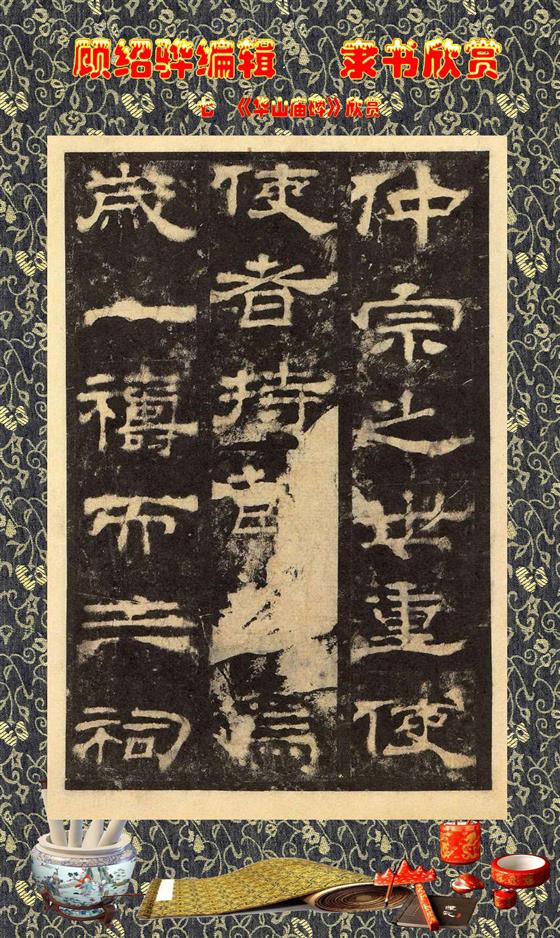 顾绍骅编辑 隶书欣赏
心 《华山庙碑》欣赏
仲宗之世重使
使者持焉
歲一禱而三祠